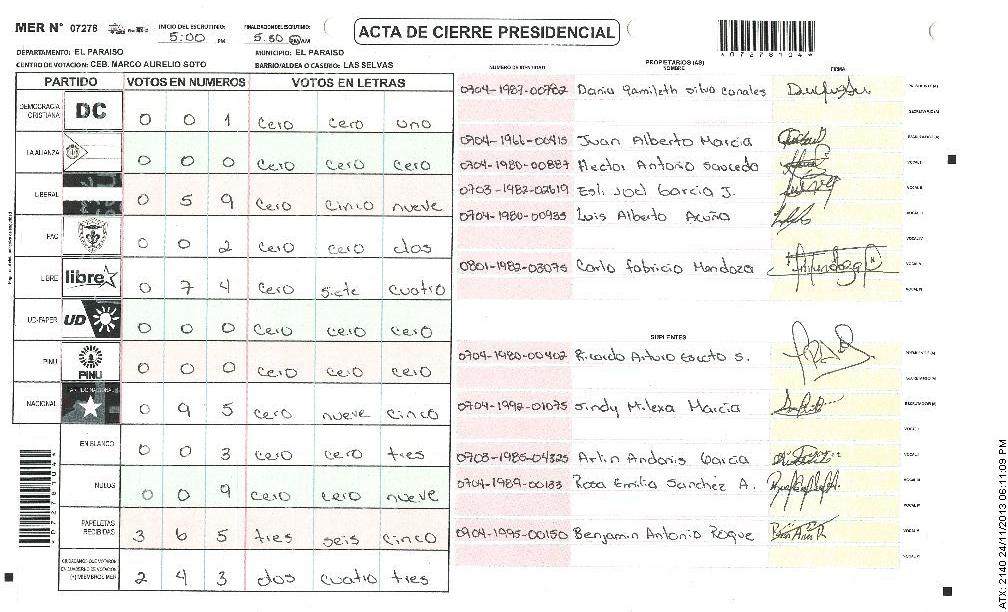 MER N° 07278
INICIO DEL ESCRUTINIO: 5:00 PM
FINALIZACION ESCRUTINIO: 5:50 AM
ACTA DE CIERRE PRESIDENCIAL
*07278104*
DEPARTAMENTO: EL PARAISO
MUNICIPIO: EL PARAISO
CENTRO DE VOTACION: CEB. MARCO AURELIO SOTO
BARRIO/ALDEA O CASERIO: LAS SELVAS
PARTIDO VOTOS EN NUMEROS VOTOS EN LETRAS
DEMOCRACIA CRISTIANA DC 0 0 1 cero cero uno
LA ALIANZA 0 0 0 cero cero cero
LIBERAL 0 5 9 cero cinco nueve
PAC 0 0 2 cero cero dos
LIBRE libre 0 7 4 cero siete cuatro
UD-FAPER UD 0 0 0 cero cero cero
PINU PINU 0 0 0 cero cero cero
NACIONAL 0 9 5 cero nueve cinco
EN BLANCO 0 0 3 cero cero tres
NULOS 0 0 9 cero cero nueve
PAPELETAS RECIBIDAS 3 6 5 tres seis cinco
CIUDADANOS QUE VOTARON EN CUADERNO DE VOTACION (+) MIEMBROS MER 2 4 3 dos cuatro tres
*07278104*
PROPIETARIOS (AS)
NUMERO DE IDENTIDAD NOMBRE FIRMA
0704-1987-00782 Dania Yamileth Silva Canales PRESIDENTE (A)
SECRETARIO (A)
0704-1966-00415 Juan Alberto Marcia ESCRUTADOR (A)
0704-1980-00887 Hector Antonio Sauceda VOCAL I
0703-1982-02619 Esli Joel Garcia J. VOCAL II
0704-1980-00935 Luis Alberto Acuña VOCAL III
VOCAL IV
0801-1982-03075 Carlo Fabricio Mendoza VOCAL V
VOCAL VI
SUPLENTES
0704-1980-00402 Ricardo Arturo Escoto S. PRESIDENTE (A)
SECRETARIO (A)
0704-1992-01075 Sindy Milexa Marcia ESCRUTADOR (A)
VOCAL I
0703-1985-04325 Arlin Andonis Garcia VOCAL II
0704-1989-00183 Rosa Emilia Sanchez A. VOCAL III
VOCAL IV
0704-1995-00150 Benjamin Antonio Roque VOCAL V
VOCAL VI
ATX: 2140 24/11/2013 06:11:09 PM